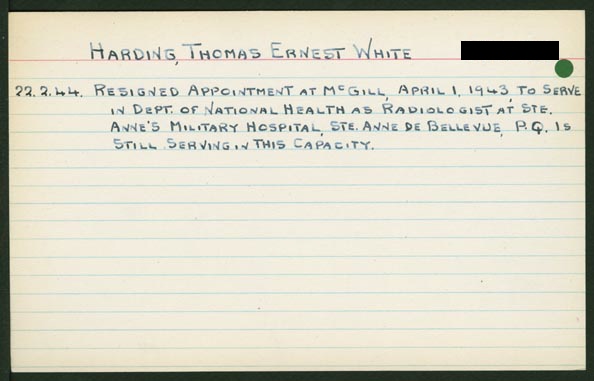 HARDING, THOMAS ERNEST WHITE
22.2.44. RESIGNED APPOINTMENT AT McGILL, APRIL 1, 1943, TO SERVE
IN DEPT. OF NATIONAL HEALTH AS RADIOLOGIST AT STE.
ANNE'S MILITARY HOSPITAL, STE. ANNE DE BELLEVUE, P.Q. IS
STILL SERVING IN THIS CAPACITY.